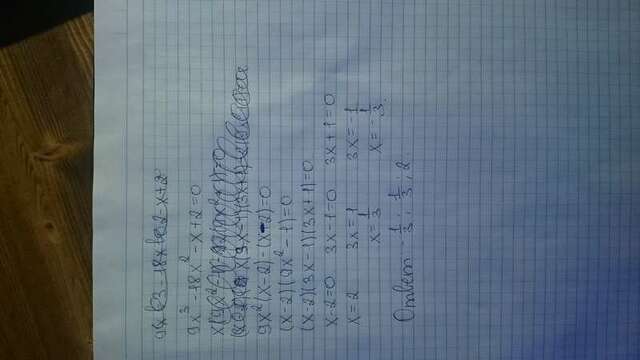 9x^3-18x^2-x+2=0
9x²(x-2)-(x-2)=0
(x-2)(9x²-1)=0
(x-2)(3x-1)(3x+1)=0
x-2=0 3x-1=0 3x+1=0
x=2 3x=1 3x=-1
x=1/3 x=-1/3
Ответ: -1/3; 1/3; 2